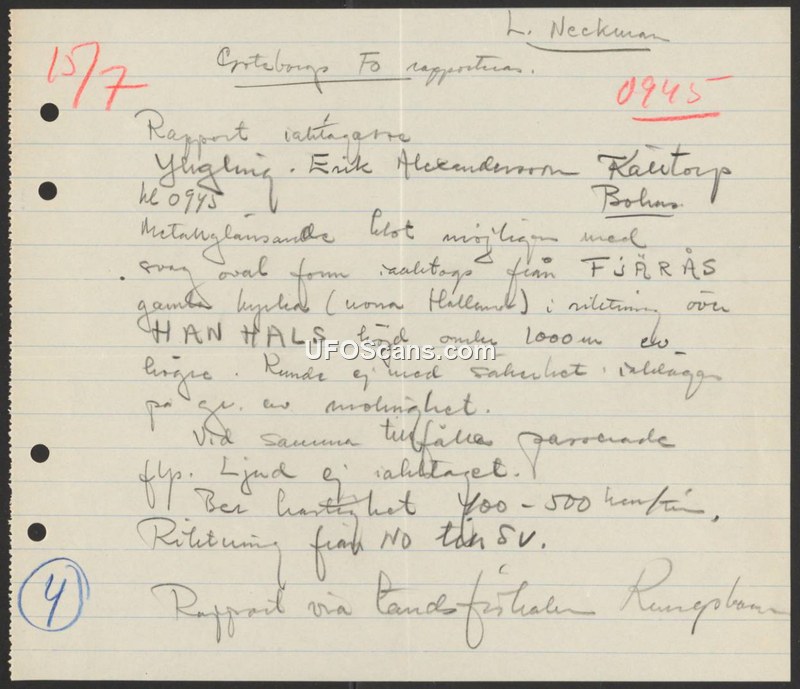 L. Neckman
15/7
Göteborgs Fo rapporteras.
0945
Rapport iakttagare
Yngling. Erik Alexandersson
Bohus
kl 0945
Metallglänsande klot möjligen med
svag oval form iakttogs från FJÄRÅS
gamla kyrka (norra Halland) i riktning över
HANHALS höjd under 1000 m ev
högre. Kunde ej med säkerhet iakttagas
på gr. av molnighet.
Vid samma tillfälle passerade
flp. Ljud ej iakttaget.
Ber hastighet 400-500 km/tim.
Riktning från NO till SV.
4
Rapport via landsfiskalen Kungsbacka
UFOScans.com